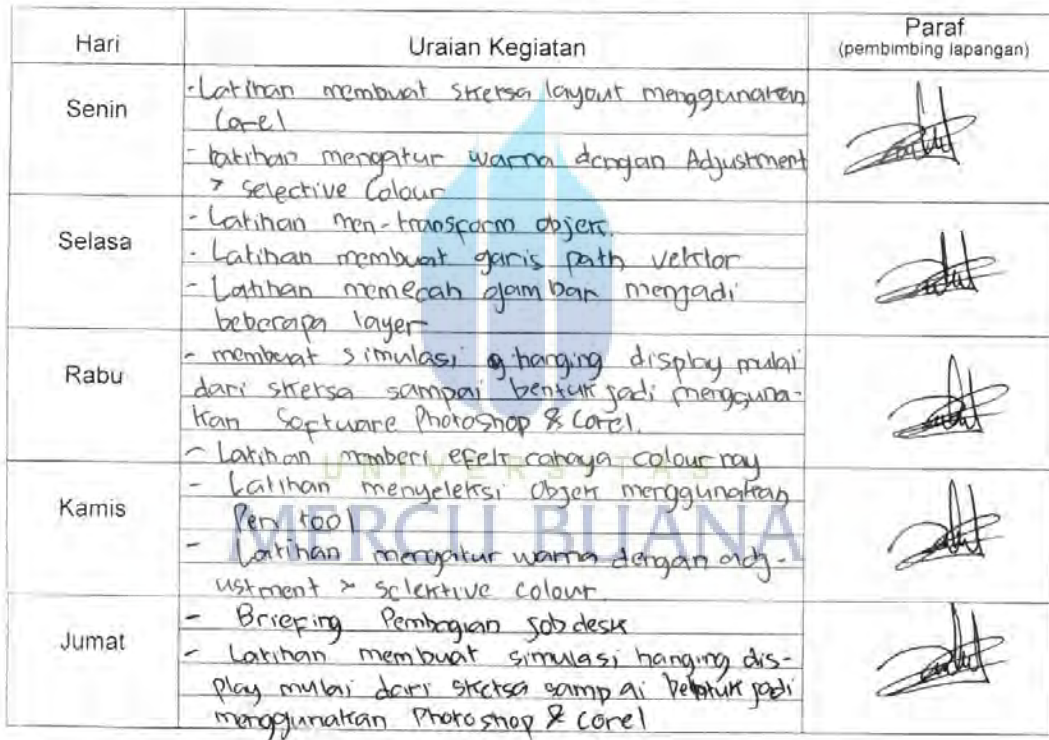 Hari Uraian Kegiatan Paraf
(pembimbing lapangan)
Senin
- Latihan membuat sketsa layout menggunakan
Corel
- Latihan mengatur warna dengan Adjustment
> Selective Colour
Selasa
- Latihan men-transform objek.
- Latihan membuat garis path vektor
- Latihan memecah gambar menjadi
beberapa layer
Rabu
- membuat simulasi hanging display mulai
dari sketsa sampai bentuk jadi mengguna-
kan Software Photoshop & Corel.
- Latihan memberi efek cahaya colour ray
UNIVERSITAS
Kamis
- Latihan menyeleksi Objek menggunakan
Pen tool
MERCU BUANA
- Latihan mengatur warna dengan adj-
ustment > selektive colour.
Jumat
- Briefing Pembagian Jobdesk
- Latihan membuat simulasi hanging dis-
play mulai dari sketsa sampai bentuk jadi
menggunakan Photoshop & Corel